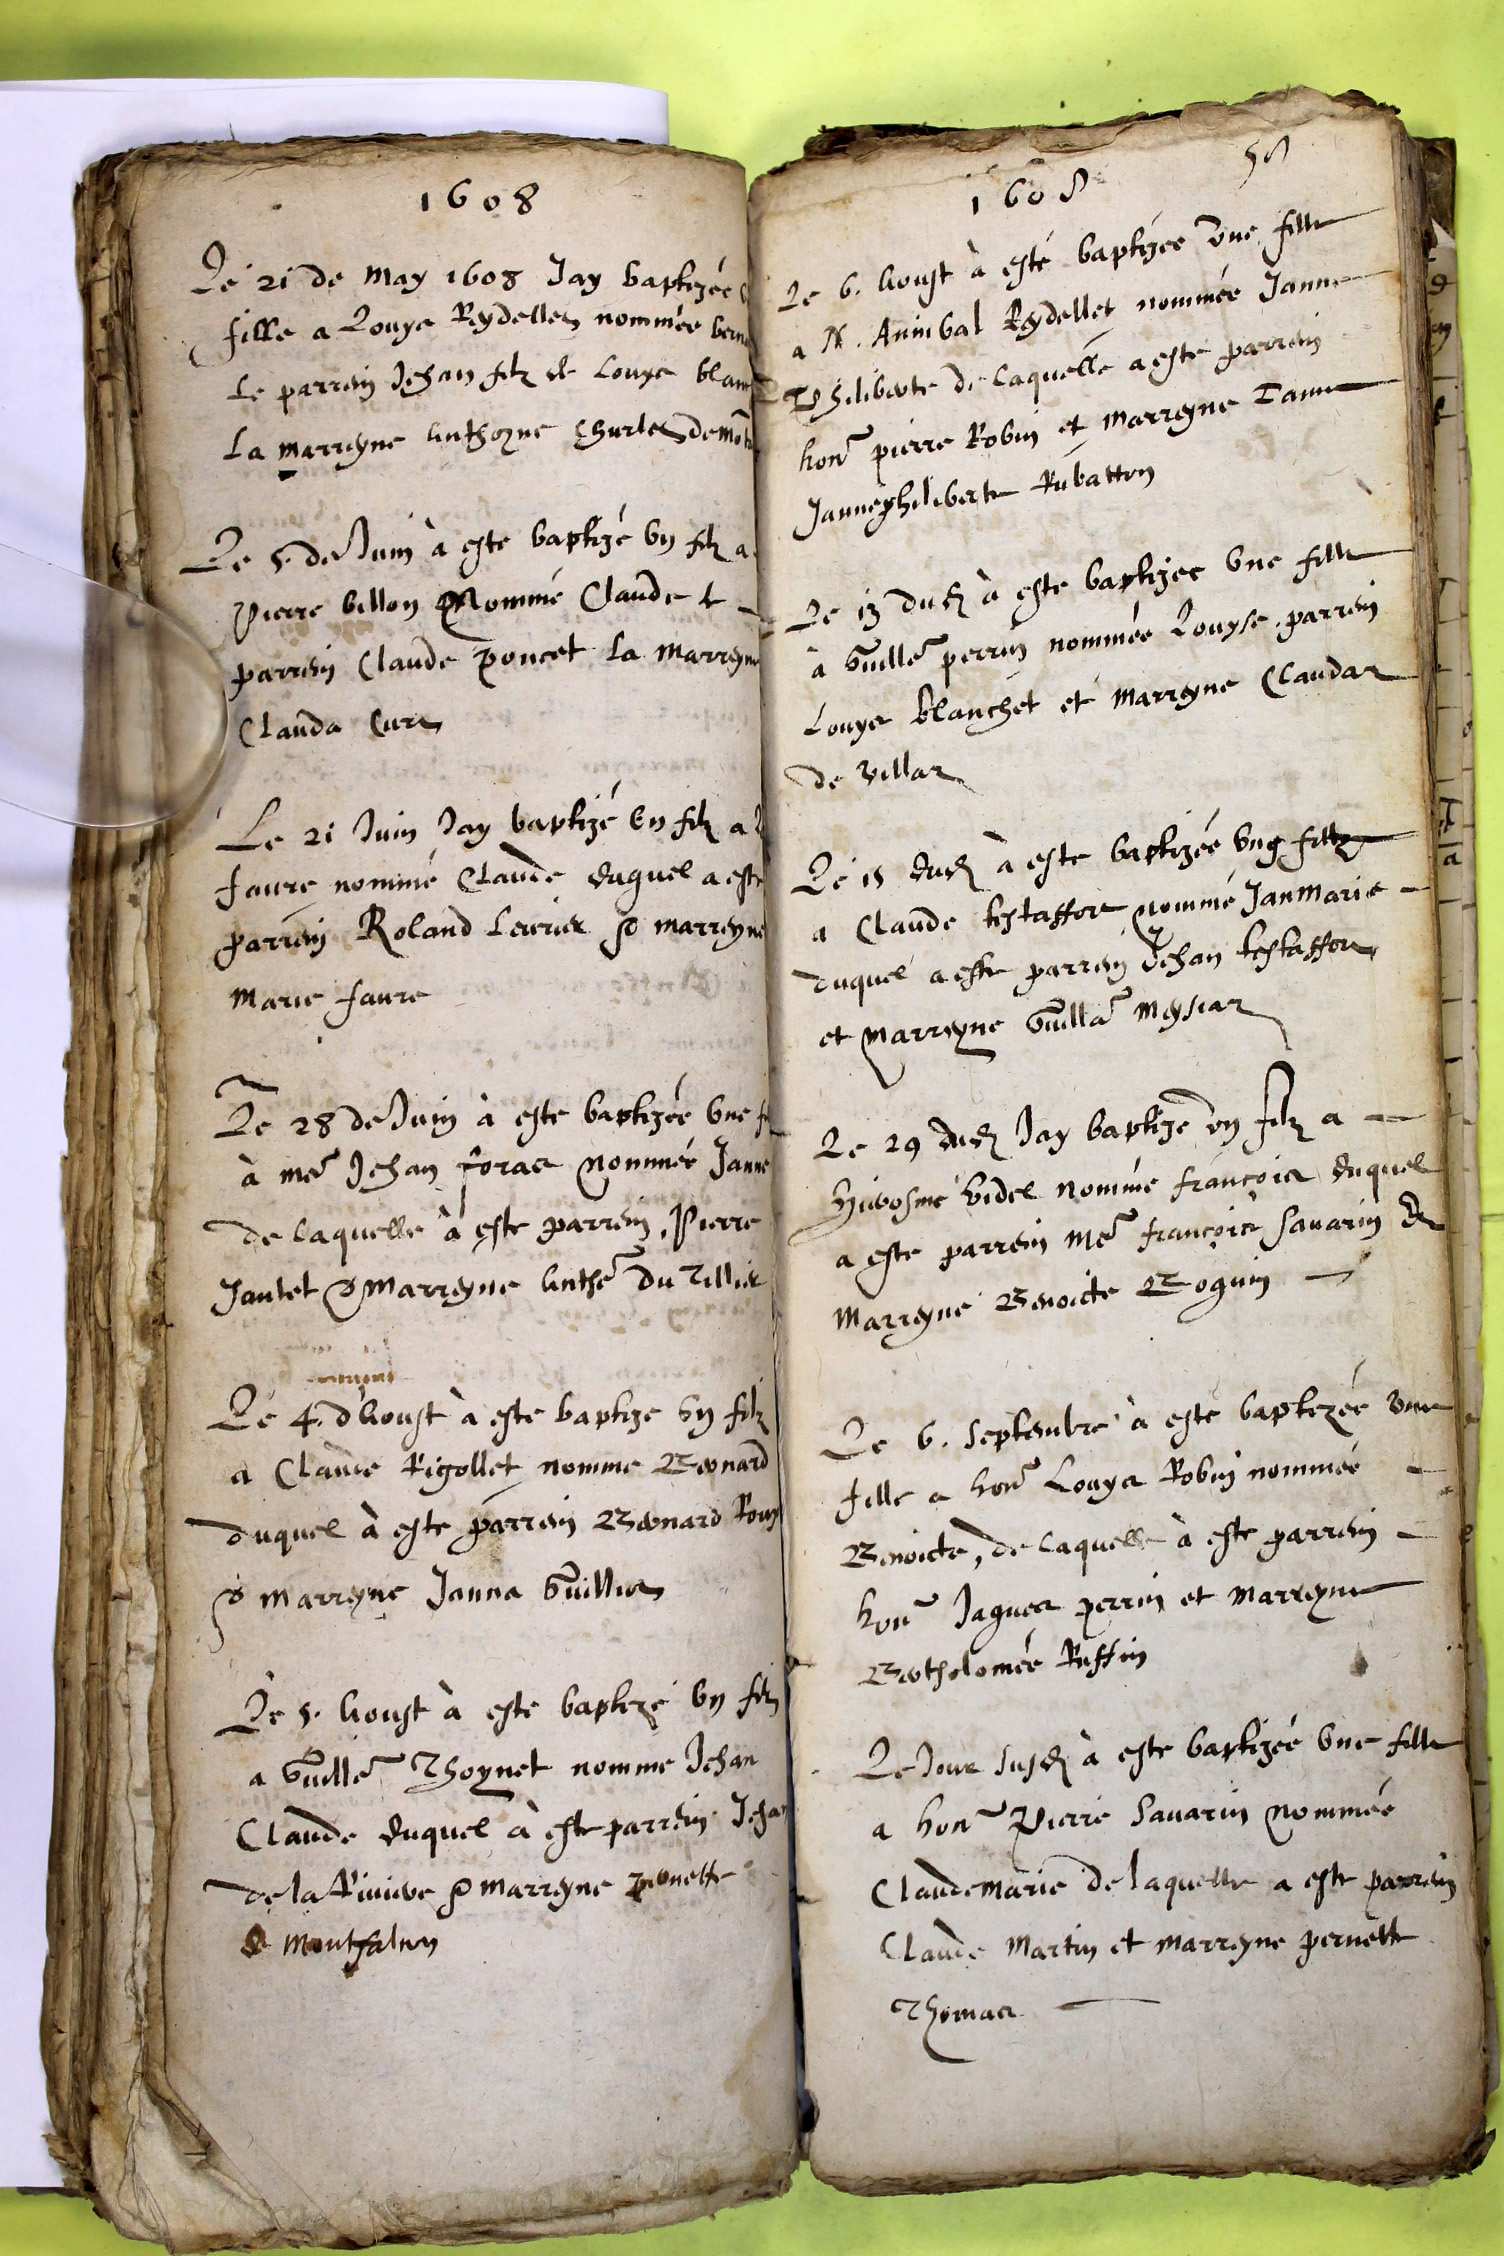 1608
Le 21 de May 1608 Jay baptizée
fille a Louys Reydellet nommée
Le parrein Jehan filz de Louys blanc
La marreyne Anthoyne Charles
Le 5. de Juin à este baptizé un filz a
Pierre billon Nommé Claude le
parrein Claude poncet La marreyne
Clauda Curt
Le 21 Juin Jay baptizé un filz a
faure nommé Claude duquel a este
parrein Roland Levrier & marreyne
Marie faure
Le 28 de Juin à este baptizée une
à me Jehan foras nommée Janne
de laquelle à este parrein Pierre
Jantet & Marreyne Anthe du Tillier
Le 4. d'Aoust à este baptize un filz
a Claude Rigollet nomme Bernard
duquel à este parrein Bernard
& marreyne Janna Guillier
Le 5. Aoust à este baptizé un filz
a Guille Thoynet nomme Jehan
Claude duquel à este parrein Jehan
de la Riviere & marreyne pernette
de Montfalcon
1608
Le 6. Aoust à esté baptizée une fille
a N. Annibal Reydellet nommée Janne
Philiberte de laquelle a este parrein
honr pierre Robin et marreyne Dame
Janne philiberte Rubatton
Le 13 dud à este baptizee une fille
à Guille perrin nommée Louyse parrein
Louys blanchet et marreyne Claudaz
de villar
Le 15 dud à este baptizée ung fillz
a Claude testaffort nommé Jan marie
duquel a este parrein Jehan testaffort
et Marreyne Guilla Meysiaz
Le 29 dud Jay baptize un filz a
Hierosme videl nommé françois duquel
a este parrein me françois Savarin &
Marreyne Benoicte Boguin
Le 6. septembre à esté baptezée une
fille a honr Louys Robin nommée
Benoicte, de laquelle à este parrein
honr Jaques perrin et marreyne
Bertholomée Ruffin
Le Jour susd à este baptizée une fille
a honr Pierre Savarin nommée
Claudemarie de laquelle a este parrein
Claude Martin et marreyne pernette
Thomas